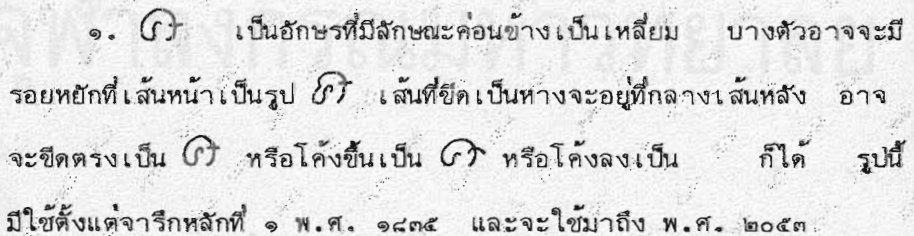 ๑. เป็นอักษรที่มีลักษณะค่อนข้างเป็นเหลี่ยม บางตัวอาจจะมี
รอยหยักที่เส้นหน้าเป็นรูป เส้นที่ขีดเป็นหางจะอยู่ที่กลางเส้นหลัง อาจ
จะขีดตรงเป็น หรือโค้งขึ้นเป็น หรือโค้งลงเป็น ก็ได้ รูปนี้
มีใช้ตั้งแต่จารึกหลักที่ ๑ พ.ศ. ๑๘๓๕ และจะใช้มาถึง พ.ศ. ๒๐๕๓